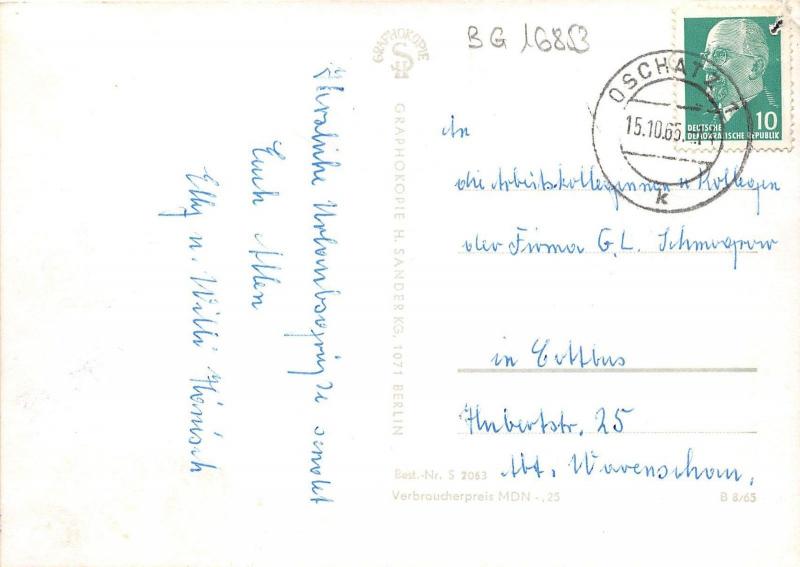 BG 1683
GRAPHOKOPIE
HS
OSCHATZ 1
15.10.65
k
DEUTSCHE
DEMOKRATISCHE REPUBLIK
10
Herzliche Urlaubsgrüße sendet
Euch Allen
Elly u. Willi Hänisch
GRAPHOKOPIE H. SANDER KG, 1071 BERLIN
An
die Arbeitskolleginnen u Kollegen
der Firma G. L. Schmogrow
in Cottbus
Hubertstr. 25
Abt. Warenschau,
Best.-Nr. S 2063
Verbraucherpreis MDN -,25
B 8/65